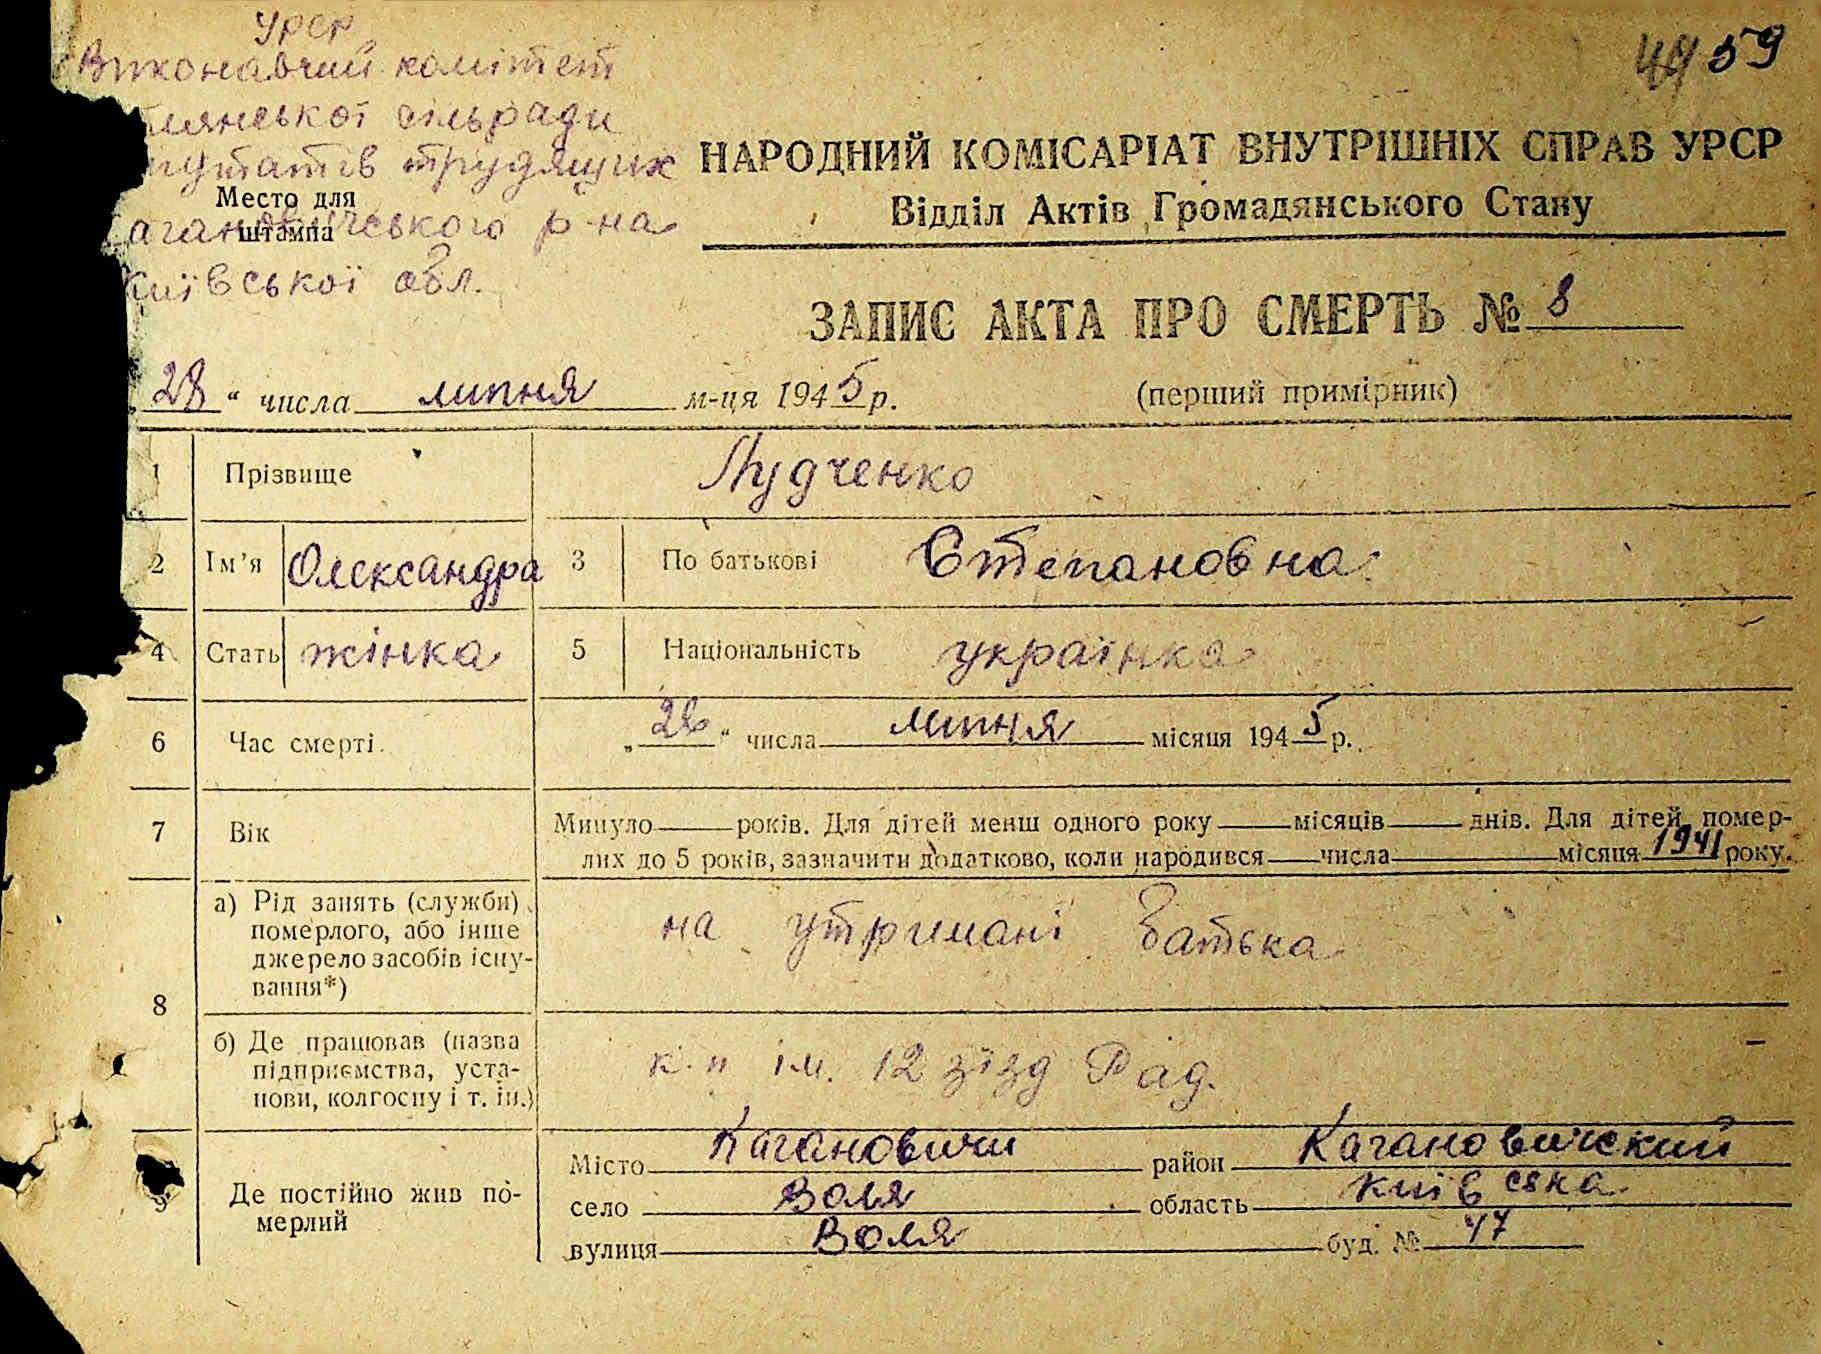 УРСР
Виконавчий комітет
лянської сільради
путатів трудящих
Место для
штампа
агановичського р-на
Київської обл.
59
НАРОДНИЙ КОМІСАРІАТ ВНУТРІШНІХ СПРАВ УРСР
Відділ Актів Громадянського Стану
ЗАПИС АКТА ПРО СМЕРТЬ № 8
„28“ числа липня м-ця 1945 р. (перший примірник)
1 Прізвище Лудченко
2 Ім’я Олександра 3 По батькові Степановна
4 Стать жінка 5 Національність українка
6 Час смерті. „28“ числа липня місяця 1945 р.
7 Вік Минуло року років. Для дітей менш одного року місяців днів. Для дітей, помер-
лих до 5 років, зазначити додатково, коли народився числа місяця 1941 року.
8 а) Рід занять (служби) померлого, або інше джерело засобів існу-
вання*) на утримані батька
б) Де працював (назва підприємства, уста-
нови, колгоспу і т. ін.) к.п ім. 12 зїзд Рад.
9 Де постійно жив по-
мерлий
Місто Кагановичи район Кагановичский
село Воля область Київська
вулиця Воля буд. № 47